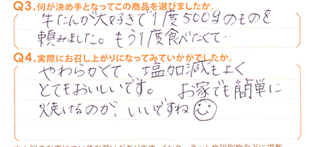 Q3.何が決め手となってこの商品を選びましたか。
牛たんが大好きで1度500gのものを
頼みました。もう1度食べたくて…
Q4.実際にお召し上がりになってみていかがでしたか。
やわらかくて、塩加減もよく
とてもおいしいです。 お家でも簡単に
焼けるのが、いいですね